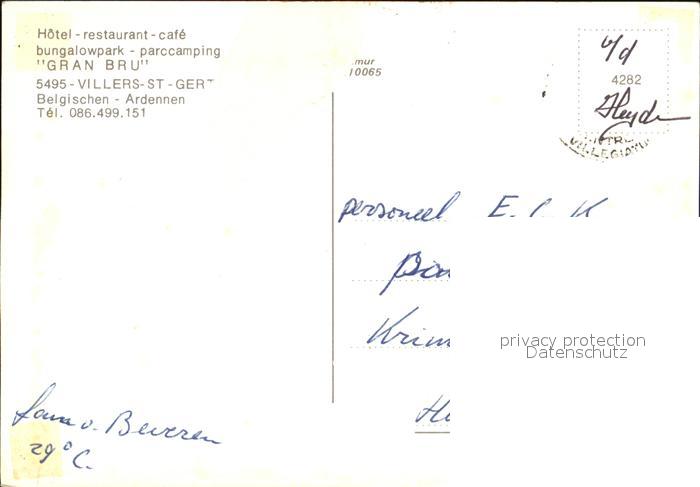 Hôtel - restaurant - café
bungalowpark - parccamping
"GRAN BRU"
5495 - VILLERS - ST - GER
Belgischen - Ardennen
Tél. 086.499.151
mur
10065
v/d
4282
Heyde
personeel E. P K
Krim
privacy protection
Datenschutz
v. Beveren
29° C.